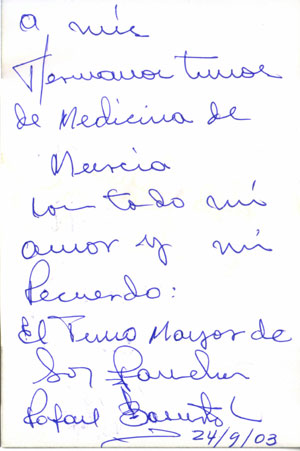 a mis
Hermanos tunos
de Medicina de
Murcia
con todo mi
amor y mi
Recuerdo:
El Tuno Mayor de
Los
Rafael
24/9/03